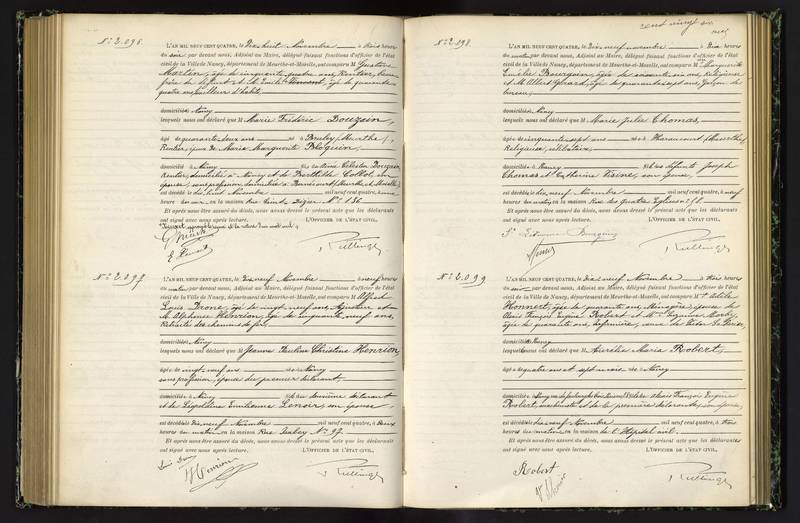 N° 2.096
L'AN MIL NEUF CENT QUATRE, le Dix huit Novembre à trois heures
du soir par devant nous, Adjoint au Maire, délégué faisant fonctions d'officier de l'état
civil de la Ville de Nancy, département de Meurthe-et-Moselle, ont comparu M Gustave
âgé de cinquante quatre ans, Rentier, beau
frère du défunt et M. Emile âgé de quarante
quatre ans
domiciliés à Nancy
lesquels nous ont déclaré que M Marie Frédéric Bouzein,
âgé de quarante deux ans né à Meurthe
Rentier, époux de Marie Marguerite Bloquin,
domicilié à Nancy fils de Célestin Bouzein
Rentier, domicilié à Nancy et de Collot, son
épouse, sans profession, domiciliée à Meurthe et Moselle
est décédé le dix huit Novembre mil neuf cent quatre, à une
heure du soir, en la maison Rue Saint Dizier N° 136
Et après nous être assuré du décès, nous avons dressé le présent acte que les déclarants
ont signé avec nous après lecture. L'OFFICIER DE L'ÉTAT CIVIL,
N° 2.097
L'AN MIL NEUF CENT QUATRE, le Dix neuf Novembre à neuf heures
du matin par devant nous, Adjoint au Maire, délégué faisant fonctions d'officier de l'état
civil de la Ville de Nancy, département de Meurthe-et-Moselle, ont comparu M Alfred
Louis Drone, âgé de vingt neuf ans, et
M. Alphonse Henrion, âgé de cinquante neuf ans,
Retraité des chemins de fer,
domiciliés à Nancy
lesquels nous ont déclaré que M Jeanne Pauline Christine Henrion,
âgée de vingt neuf ans née à Nancy
sans profession, épouse du premier déclarant,
domiciliée à Nancy fille du deuxième déclarant
et de Léopoldine Emilienne Lenoir, son épouse
est décédée le dix neuf Novembre mil neuf cent quatre, à deux
heures du matin, en la maison Rue Isabey N° 27
Et après nous être assuré du décès, nous avons dressé le présent acte que les déclarants
ont signé avec nous après lecture. L'OFFICIER DE L'ÉTAT CIVIL,
Henrion
cent vingt six
N° 2.098
L'AN MIL NEUF CENT QUATRE, le Dix neuf novembre à Dix heures
du matin par devant nous, Adjoint au Maire, délégué faisant fonctions d'officier de l'état
civil de la Ville de Nancy, département de Meurthe-et-Moselle, ont comparu M Marguerite
Emélie Bourgoin, âgée de soixante six ans, Religieuse
et M. Albert Gérard, âgé de quarante sept ans, Garçon de
bureau,
domiciliés à Nancy
lesquels nous ont déclaré que M Marie Julie Thomas,
âgée de cinquante sept ans née à Haraucourt (Meurthe)
Religieuse, célibataire,
domiciliée à Nancy fille des défunts Joseph
Thomas et Catherine son épouse,
est décédée le dix neuf Novembre mil neuf cent quatre, à neuf
heures du matin, en la maison Rue des Quatre Eglises
Et après nous être assuré du décès, nous avons dressé le présent acte que les déclarants
ont signé avec nous après lecture. L'OFFICIER DE L'ÉTAT CIVIL,
N° 2.099
L'AN MIL NEUF CENT QUATRE, le Dix neuf Novembre à trois heures
du soir par devant nous, Adjoint au Maire, délégué faisant fonctions d'officier de l'état
civil de la Ville de Nancy, département de Meurthe-et-Moselle, ont comparu M
Honnert, âgée de quarante ans, Ménagère, épouse de
Alexis François Eugène Robert et
âgée de quarante ans, Infirmière, veuve de
domiciliées à Nancy
lesquelles nous ont déclaré que M Aurélie Marie Robert,
âgée de quatre ans et sept mois née à Nancy
domiciliée à Nancy fille de Alexis François Eugène
Robert, et de la première déclarante, son épouse,
est décédée le dix neuf Novembre mil neuf cent quatre, à trois
heures du matin, en la maison de l'Hôpital civil
Et après nous être assuré du décès, nous avons dressé le présent acte que les déclarantes
ont signé avec nous après lecture. L'OFFICIER DE L'ÉTAT CIVIL,
Robert